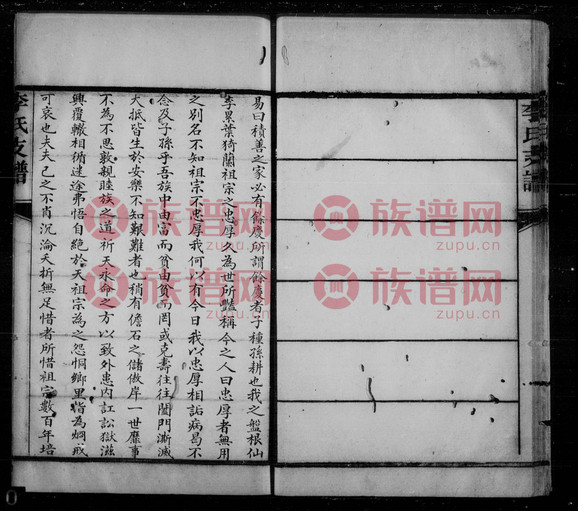 李氏支譜
易曰積善之家必有餘慶所謂餘慶者子種孫耕也我之盤根仙
李累葉猗蘭祖宗之忠厚久為世所豔稱今之人曰忠厚者無用
之別名不知祖宗不忠厚我何以有今日我以忠厚相詬病曷不
念及子孫乎吾族中由富而貧由貧而罔或克壽往往闔門澌滅
大抵皆生於安樂不知艱難者也稍有儋石之儲傲岸一世靡事
不為不思敦親睦族之道祈天永命之方以致外患內訌訟獄滋
興覆轍相循迷途弗悟自絕於天祖宗為之怨恫鄉里指為炯戒
可哀也夫夫己之不肖沉淪夭折無足惜者所惜祖宗數百年培
李氏支譜
族谱网
zupu.cn
族谱网
zupu.cn
族谱网
zupu.cn
族谱网
zupu.cn